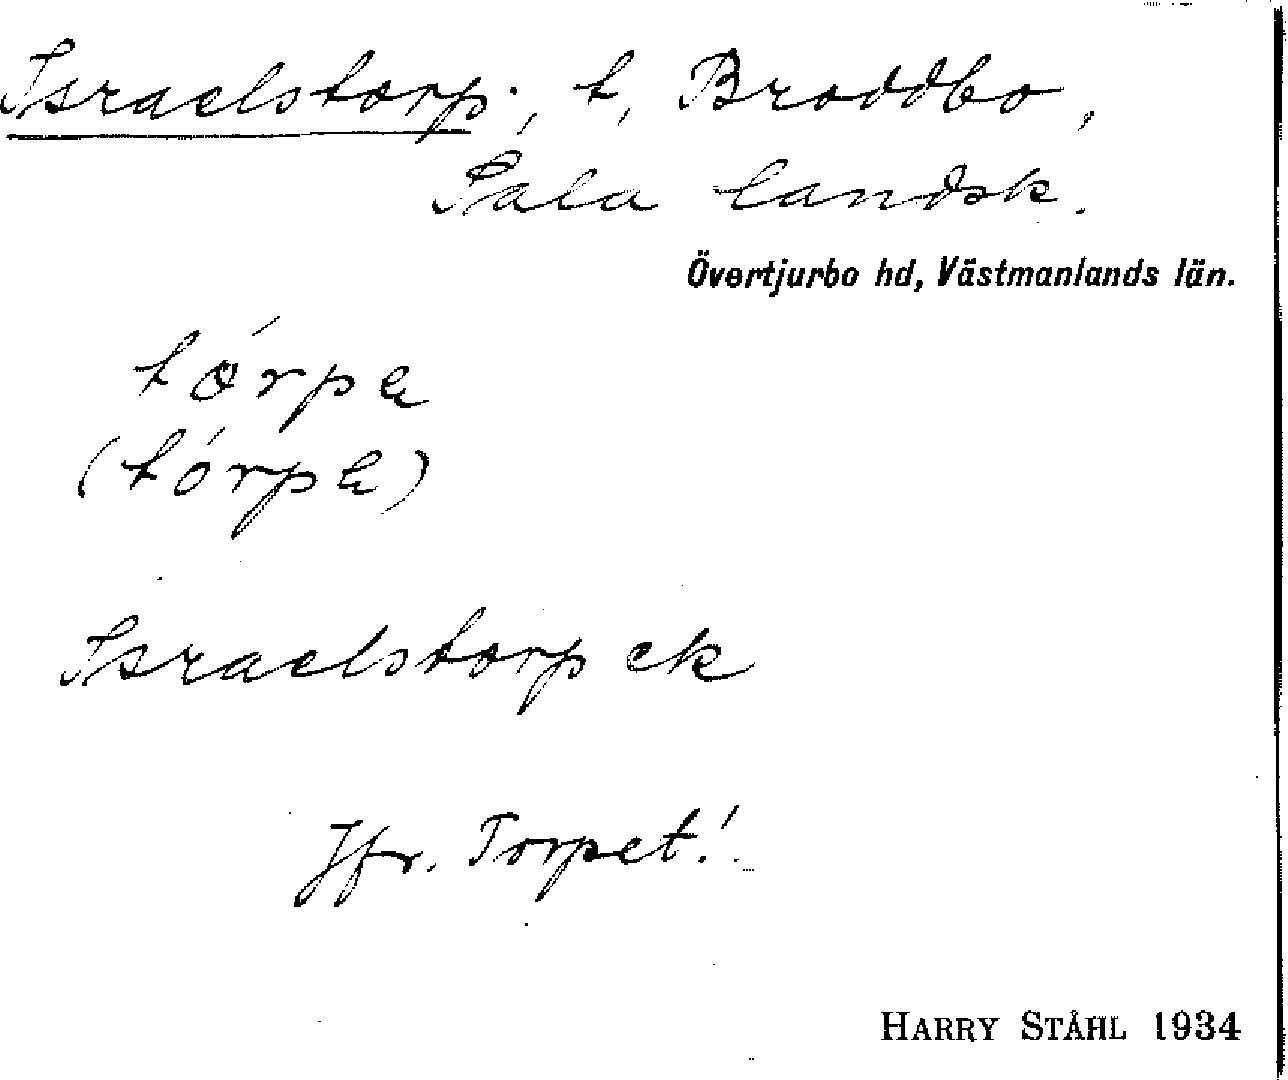 Israelstorp, t, Broddbo,
Sala landsk.
Övertjurbo hd, Västmanlands län.
tórpα
(tórpα)
Israelstorp ek
Jfr. Torpet!
HARRY STÅHL 1934